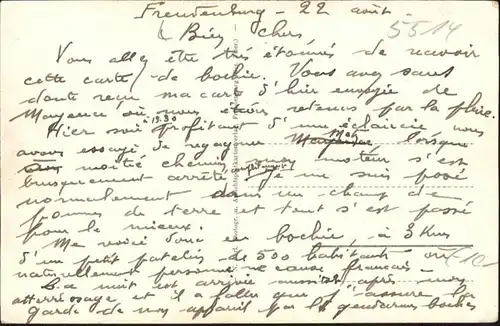 Freudenburg - 22 août
5514
Bien chers
Vous allez être très étonnés de recevoir
cette carte de bochie. Vous avez sans
doute reçu ma carte d'hier envoyée de
Mayence où nous étions retenus par la pluie.
Hier soir à 19.30 profitant d'une éclaircie nous
avons essayé de regagner Metz lorsque
moitié chemin mon moteur s'est
brusquement arrêté. Je me suis posé
normalement dans un champ de
pommes de terre et tout s'est passé
pour le mieux.
Me voici donc en bochie, à 3 Kms
d'un petit patelin de 500 habitants où
naturellement personne ne cause français -
La nuit est arrivée aussitôt après mon
atterrissage et il a fallu que j'assure la
garde de mon appareil par les gendarmes boches